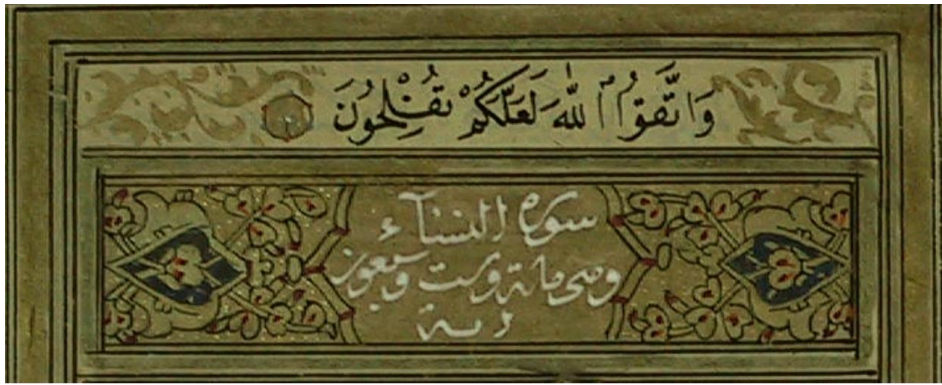 وَاتَّقُوا اللّٰهَ لَعَلَّكُمْ تُفْلِحُونَ
سورة النسآء
وهي مائة وست وسبعون
اية